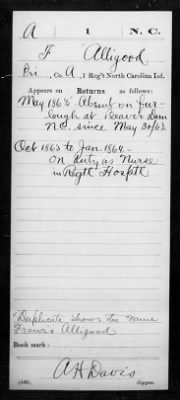 A 1 N.C.
F Alligood
Pri, Co. A, 1 Reg't North Carolina Inf.
Appears on Returns as follows:
May 1863 Absent on fur-
lough at Beaver Dam
N.C. since May 30/63.
Oct 1863 to Jan. 1864-
On duty as Nurse
in Regtl Hospitl
Duplicate shows the name
Francis Alligood
Book mark:
A H Davis
Copyist.